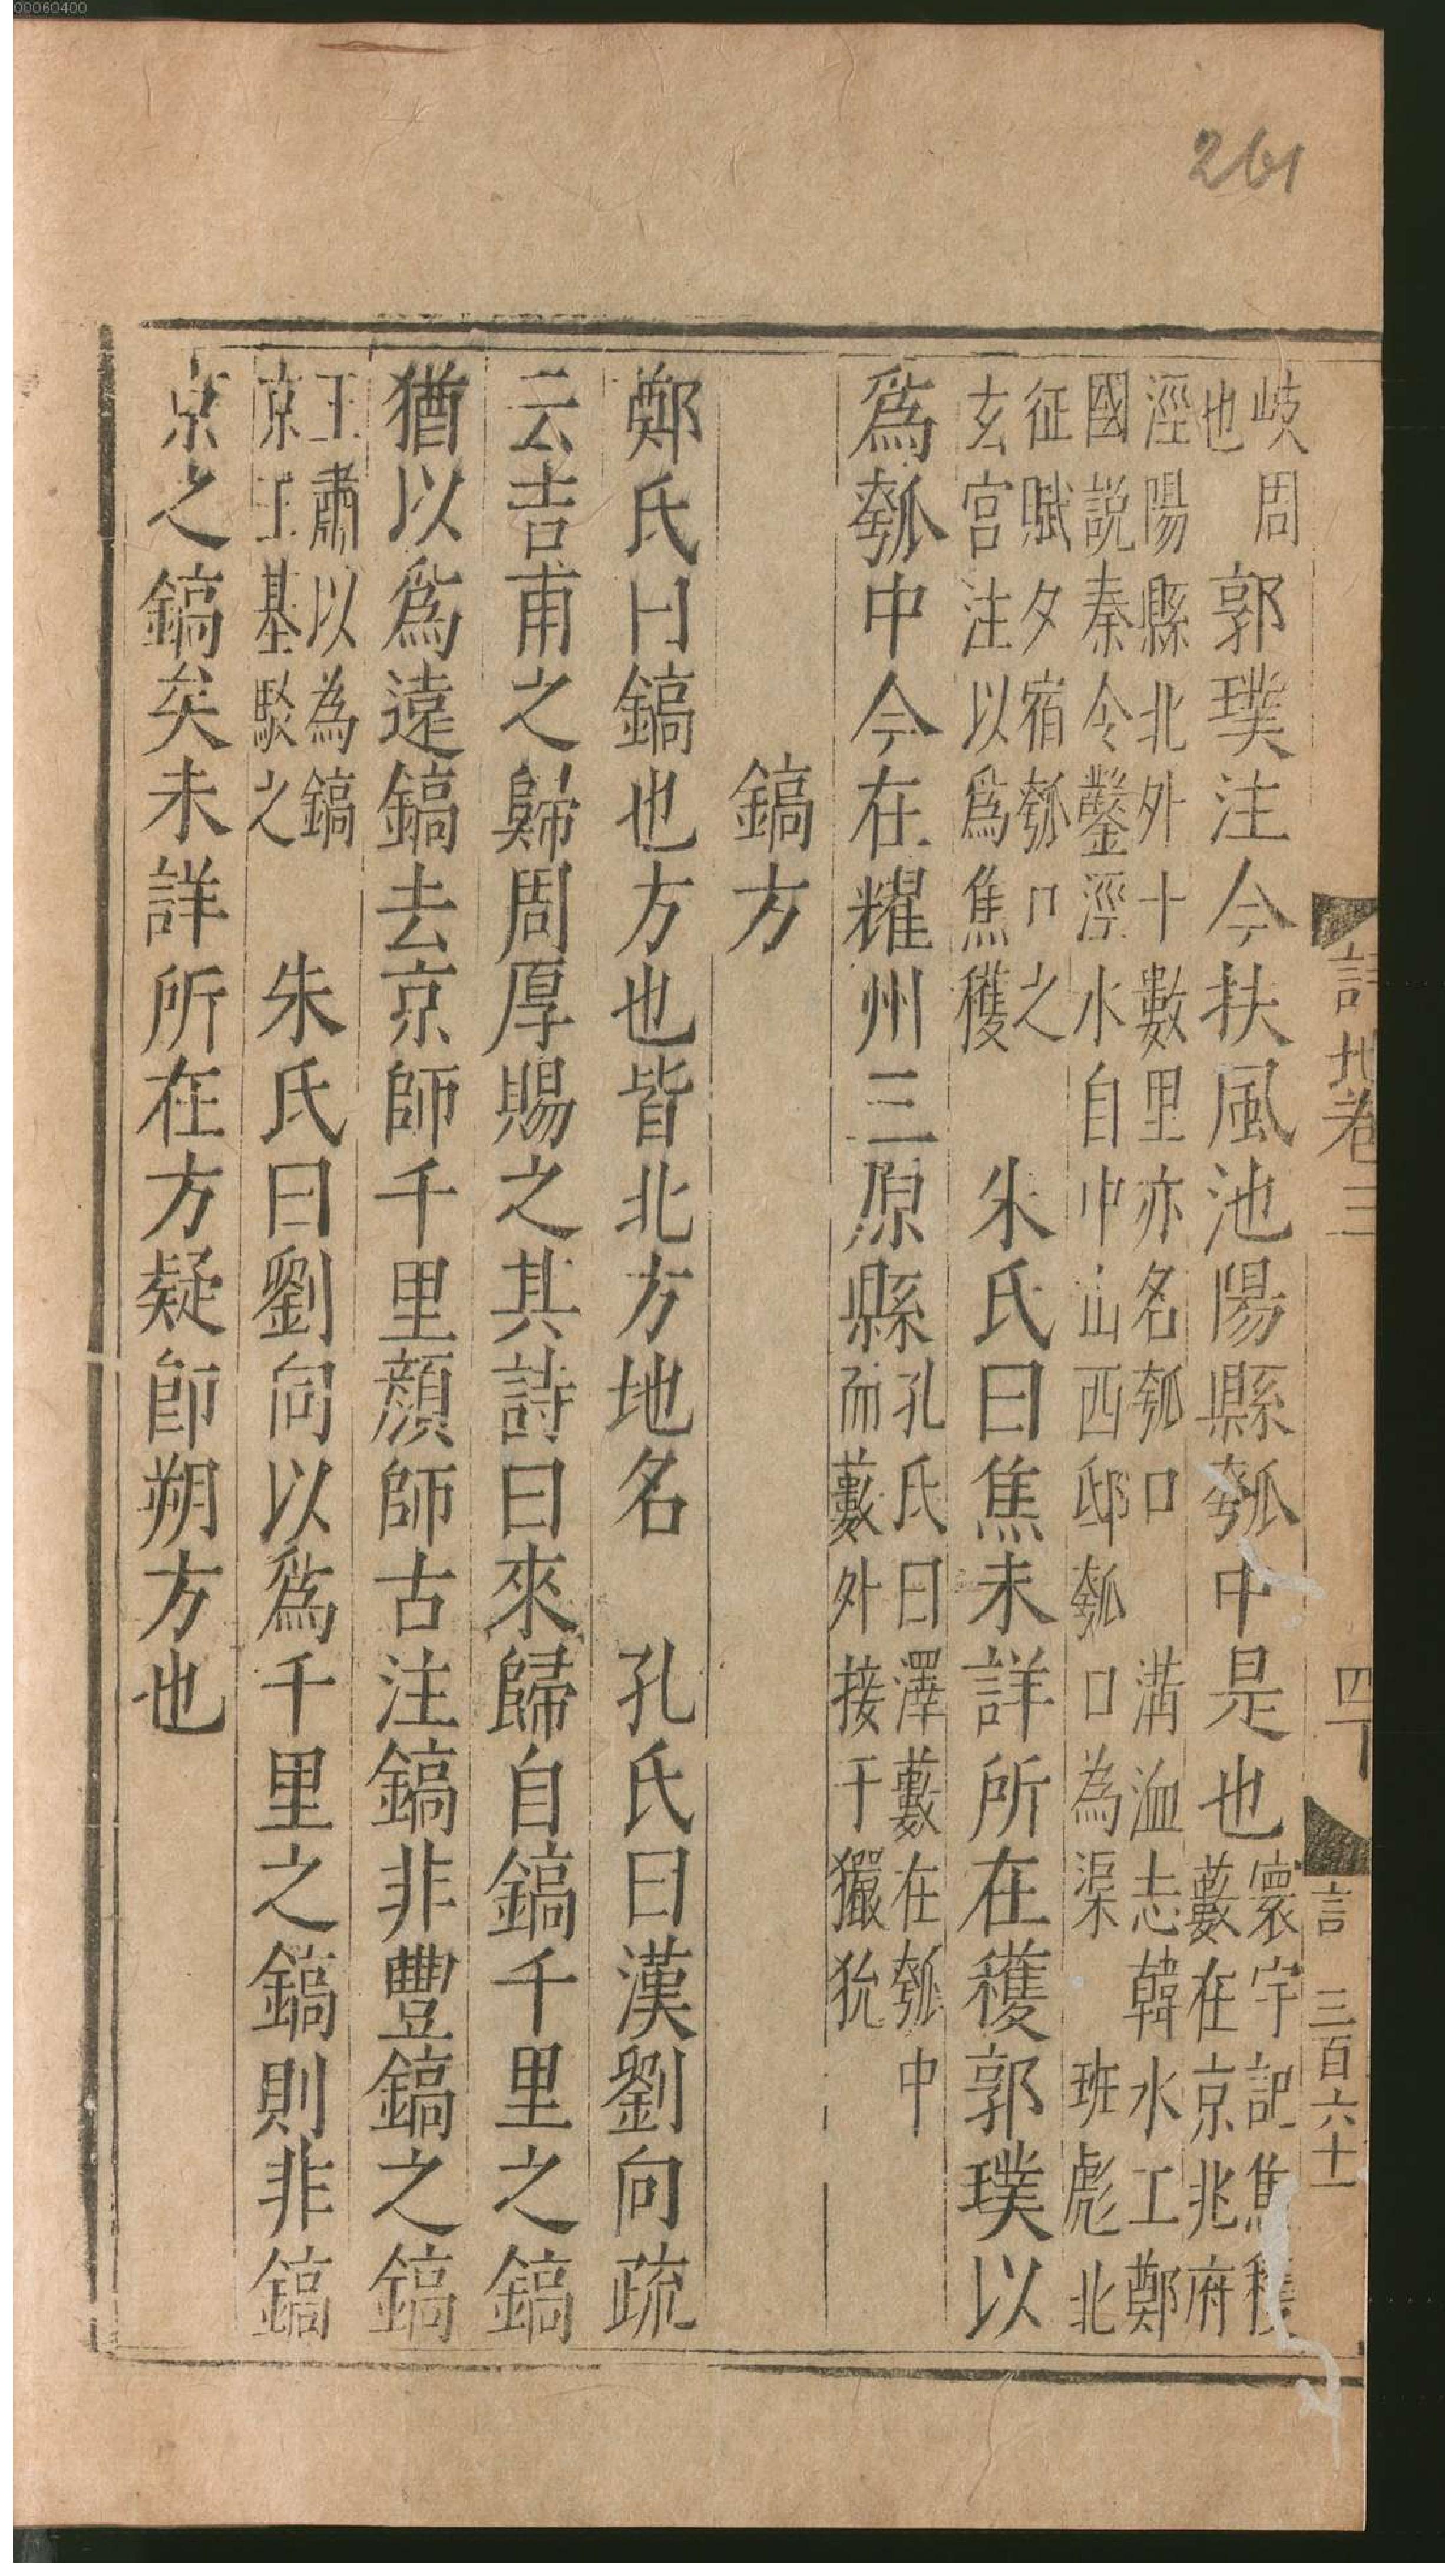 00060400
261
詩地卷三　四十　言　三百六十一
岐周
也　郭璞注今扶風池陽縣瓠中是也寰宇記焦穫
藪在京兆府
涇陽縣北外十數里亦名瓠口　溝洫志韓水工鄭
國説秦令鑿涇水自中山西邸瓠口為渠　班彪北
征賦夕宿瓠口之
玄宫注以爲焦穫　朱氏曰焦未詳所在穫郭璞以
爲瓠中今在耀州三原縣孔氏曰澤藪在瓠中
而藪外接于玁狁
鎬方
鄭氏曰鎬也方也皆北方地名　孔氏曰漢劉向疏
云吉甫之歸周厚賜之其詩曰來歸自鎬千里之鎬
猶以爲遠鎬去京師千里顏師古注鎬非豐鎬之鎬
王肅以為鎬
京王基駁之　朱氏曰劉向以爲千里之鎬則非鎬
京之鎬矣未詳所在方疑卽朔方也